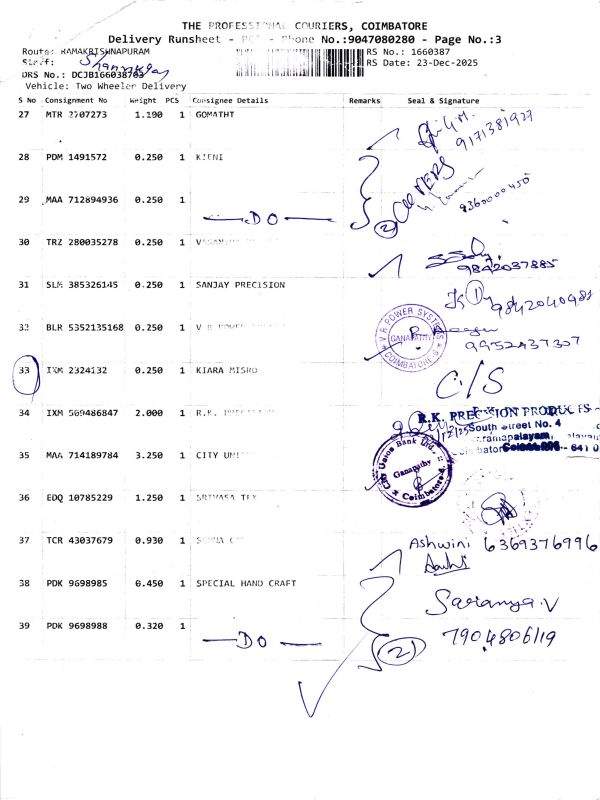 THE PROFESSIONAL COURIERS, COIMBATORE
Delivery Runsheet - - Phone No.:9047080280 - Page No.:3
Route: RAMAKRISHNAPURAM RS No.: 1660387
Staff: RS Date: 23-Dec-2025
DRS No.: DCJB166038703
Vehicle: Two Wheeler Delivery
S No Consignment No Weight PCS Consignee Details Remarks Seal & Signature
27 MTR 2707273 1.190 1 GOMATHT
9171381927
28 PDM 1491572 0.250 1 KIENI
29 MAA 712894936 0.250 1
DO
(2)
9360000450
30 TRZ 280035278 0.250 1
9842037885
31 SLM 385326145 0.250 1 SANJAY PRECISION
9842040981
32 BLR 5352135168 0.250 1 V R POWER
V R POWER SYSTEMS
GANAPATHY
COIMBATORE-6
9952437307
33 IXM 2324132 0.250 1 KIARA MISRO
C/S
34 IXM 569486847 2.000 1 R.K. PRECISION
R.K. PRECISION PRODUCTS
South Street No. 4
35 MAA 714189784 3.250 1 CITY UNI
City Union Bank Ltd.
Ganapathy
Coimbatore
36 EDQ 10785229 1.250 1 SRIVASA TEX
37 TCR 43037679 0.930 1
Ashwini 6369376996
38 PDK 9698985 0.450 1 SPECIAL HAND CRAFT
Saranya.V
39 PDK 9698988 0.320 1
DO
(2)
7904806119